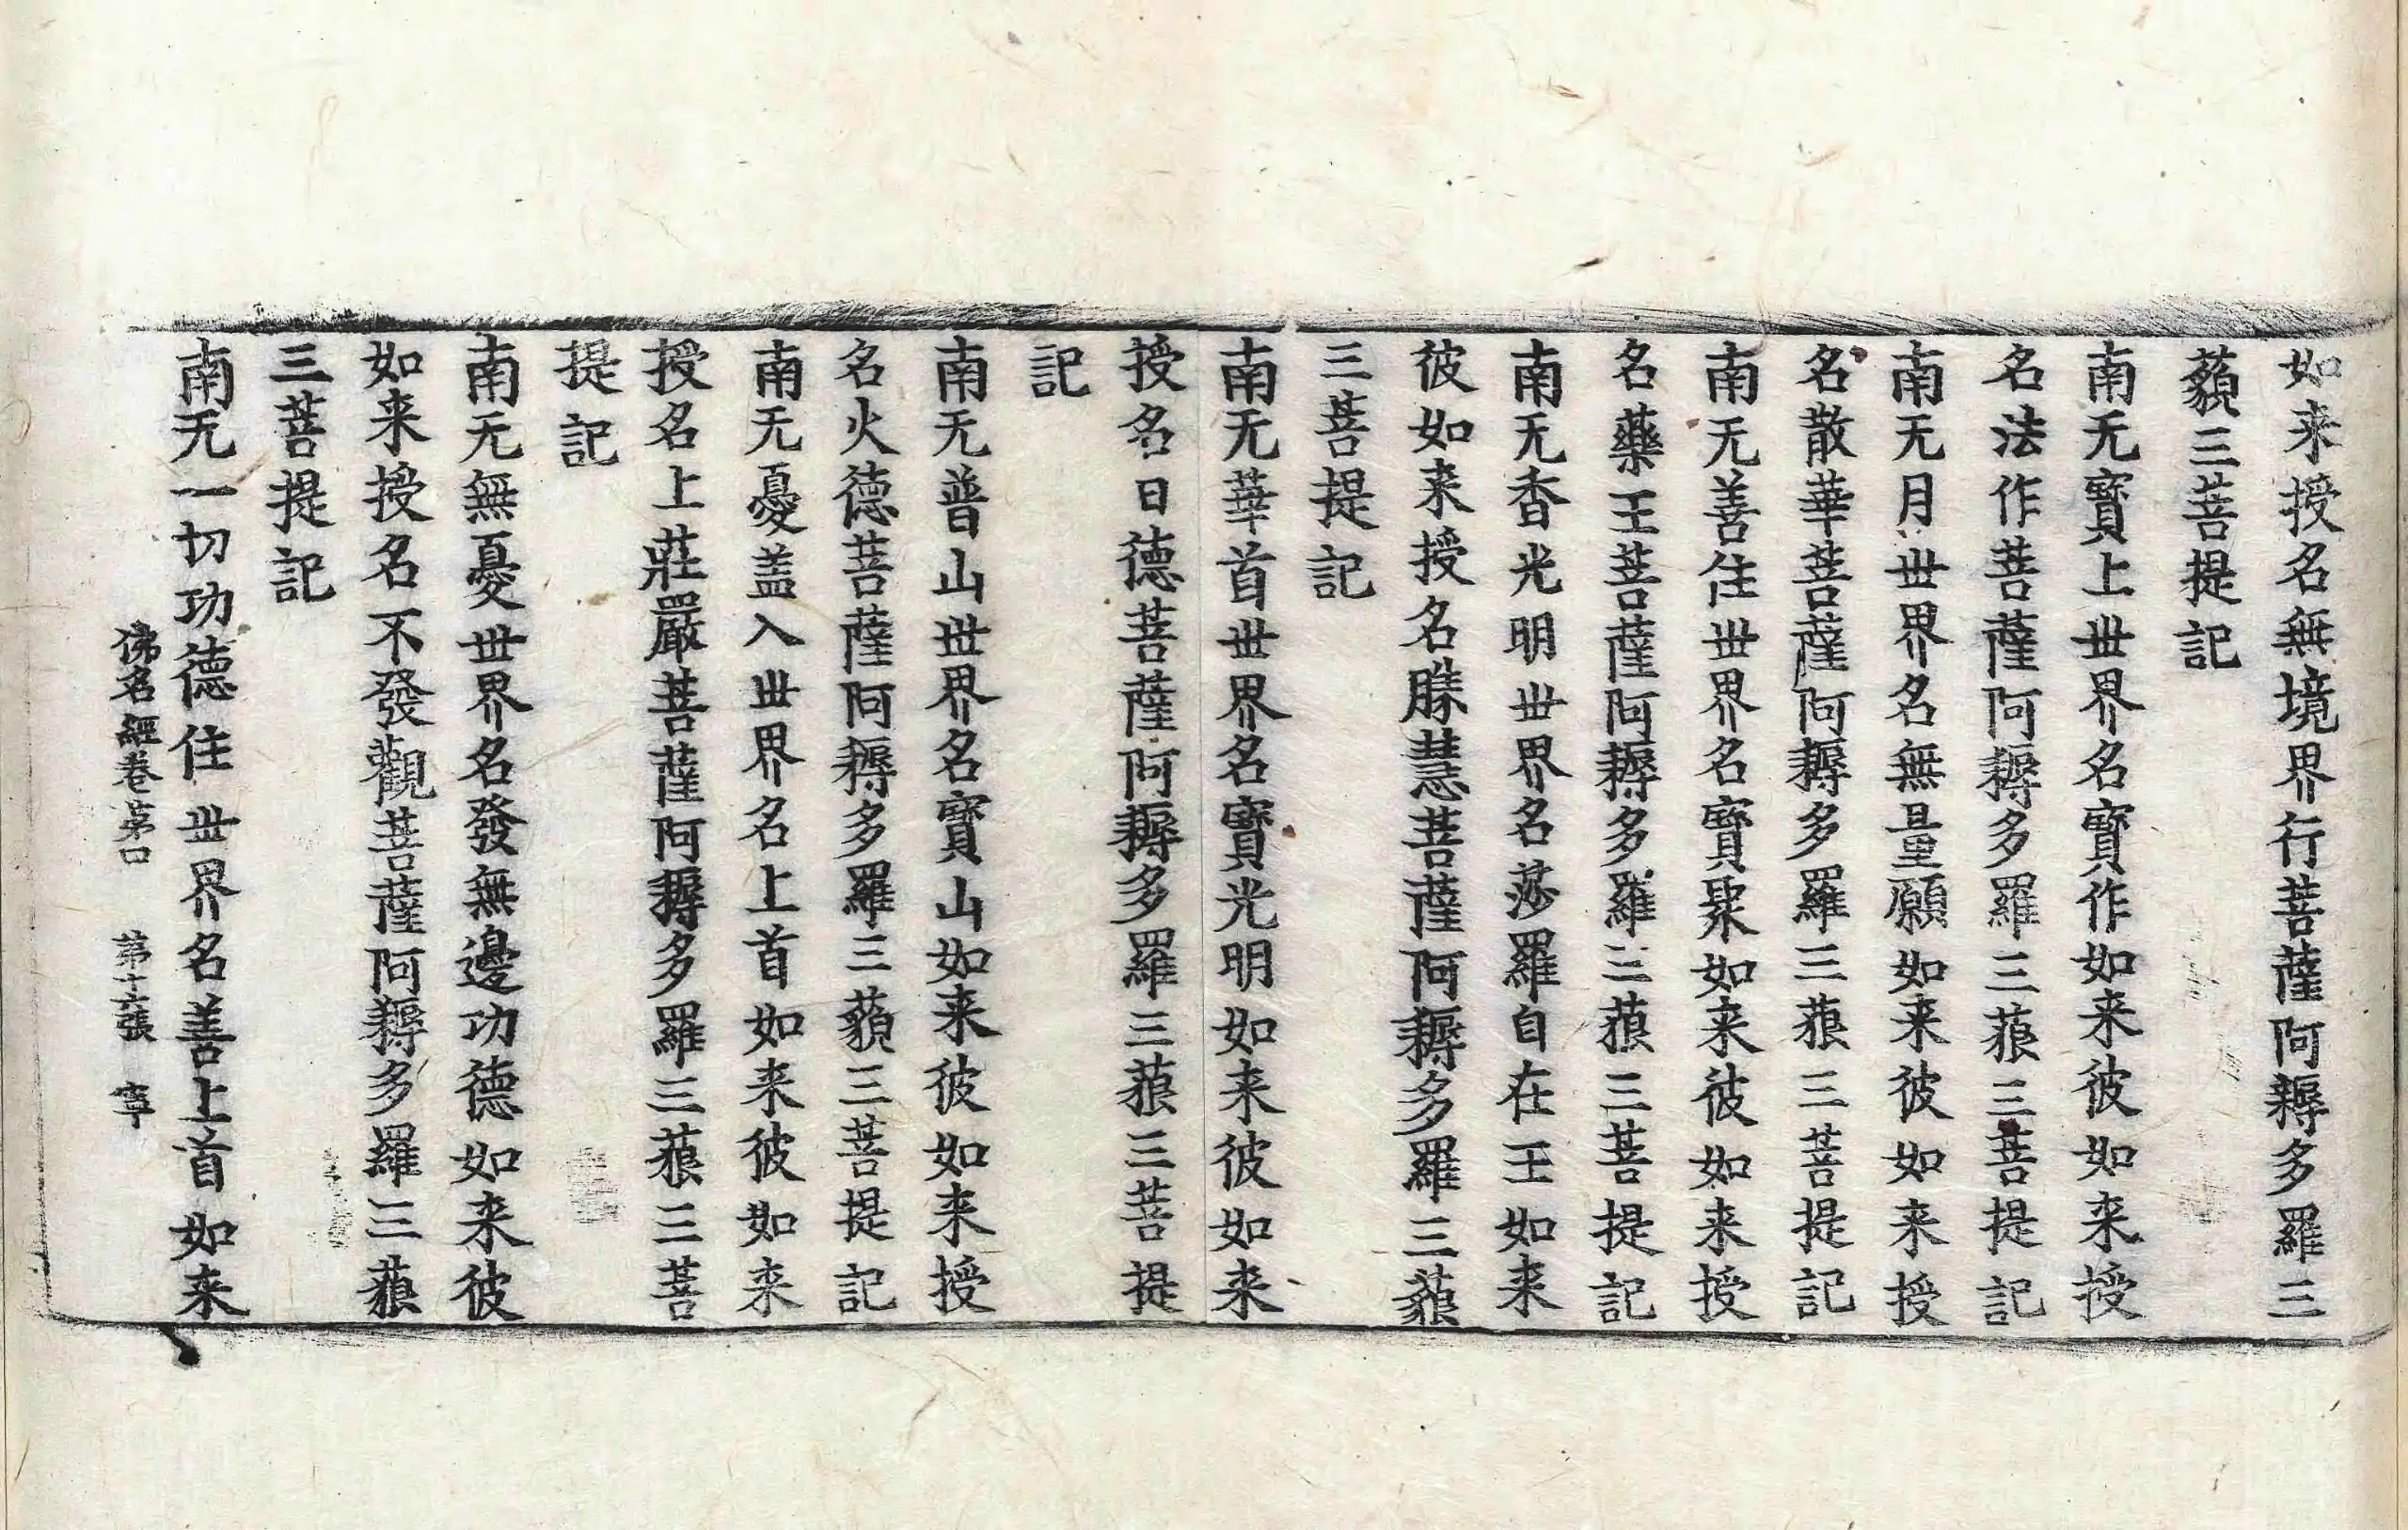 如来授名無境界行菩薩阿耨多羅三
藐三菩提記
南无寶上世界名寶作如来彼如来授
名法作菩薩阿耨多羅三藐三菩提記
南无月世界名無量願如来彼如来授
名散華菩薩阿耨多羅三藐三菩提記
南无善住世界名寶聚如来彼如来授
名藥王菩薩阿耨多羅三藐三菩提記
南无香光明世界名莎羅自在王如来
彼如来授名勝慧菩薩阿耨多羅三藐
三菩提記
南无華首世界名寶光明如来彼如来
授名日德菩薩阿耨多羅三藐三菩提
記
南无普山世界名寶山如来彼如来授
名火德菩薩阿耨多羅三藐三菩提記
南无憂盖入世界名上首如来彼如来
授名上莊嚴菩薩阿耨多羅三藐三菩
提記
南无無憂世界名發無邊功德如来彼
如来授名不發觀菩薩阿耨多羅三藐
三菩提記
南无一切功德住世界名善上首如来
佛名經卷第口 第十六張 寧